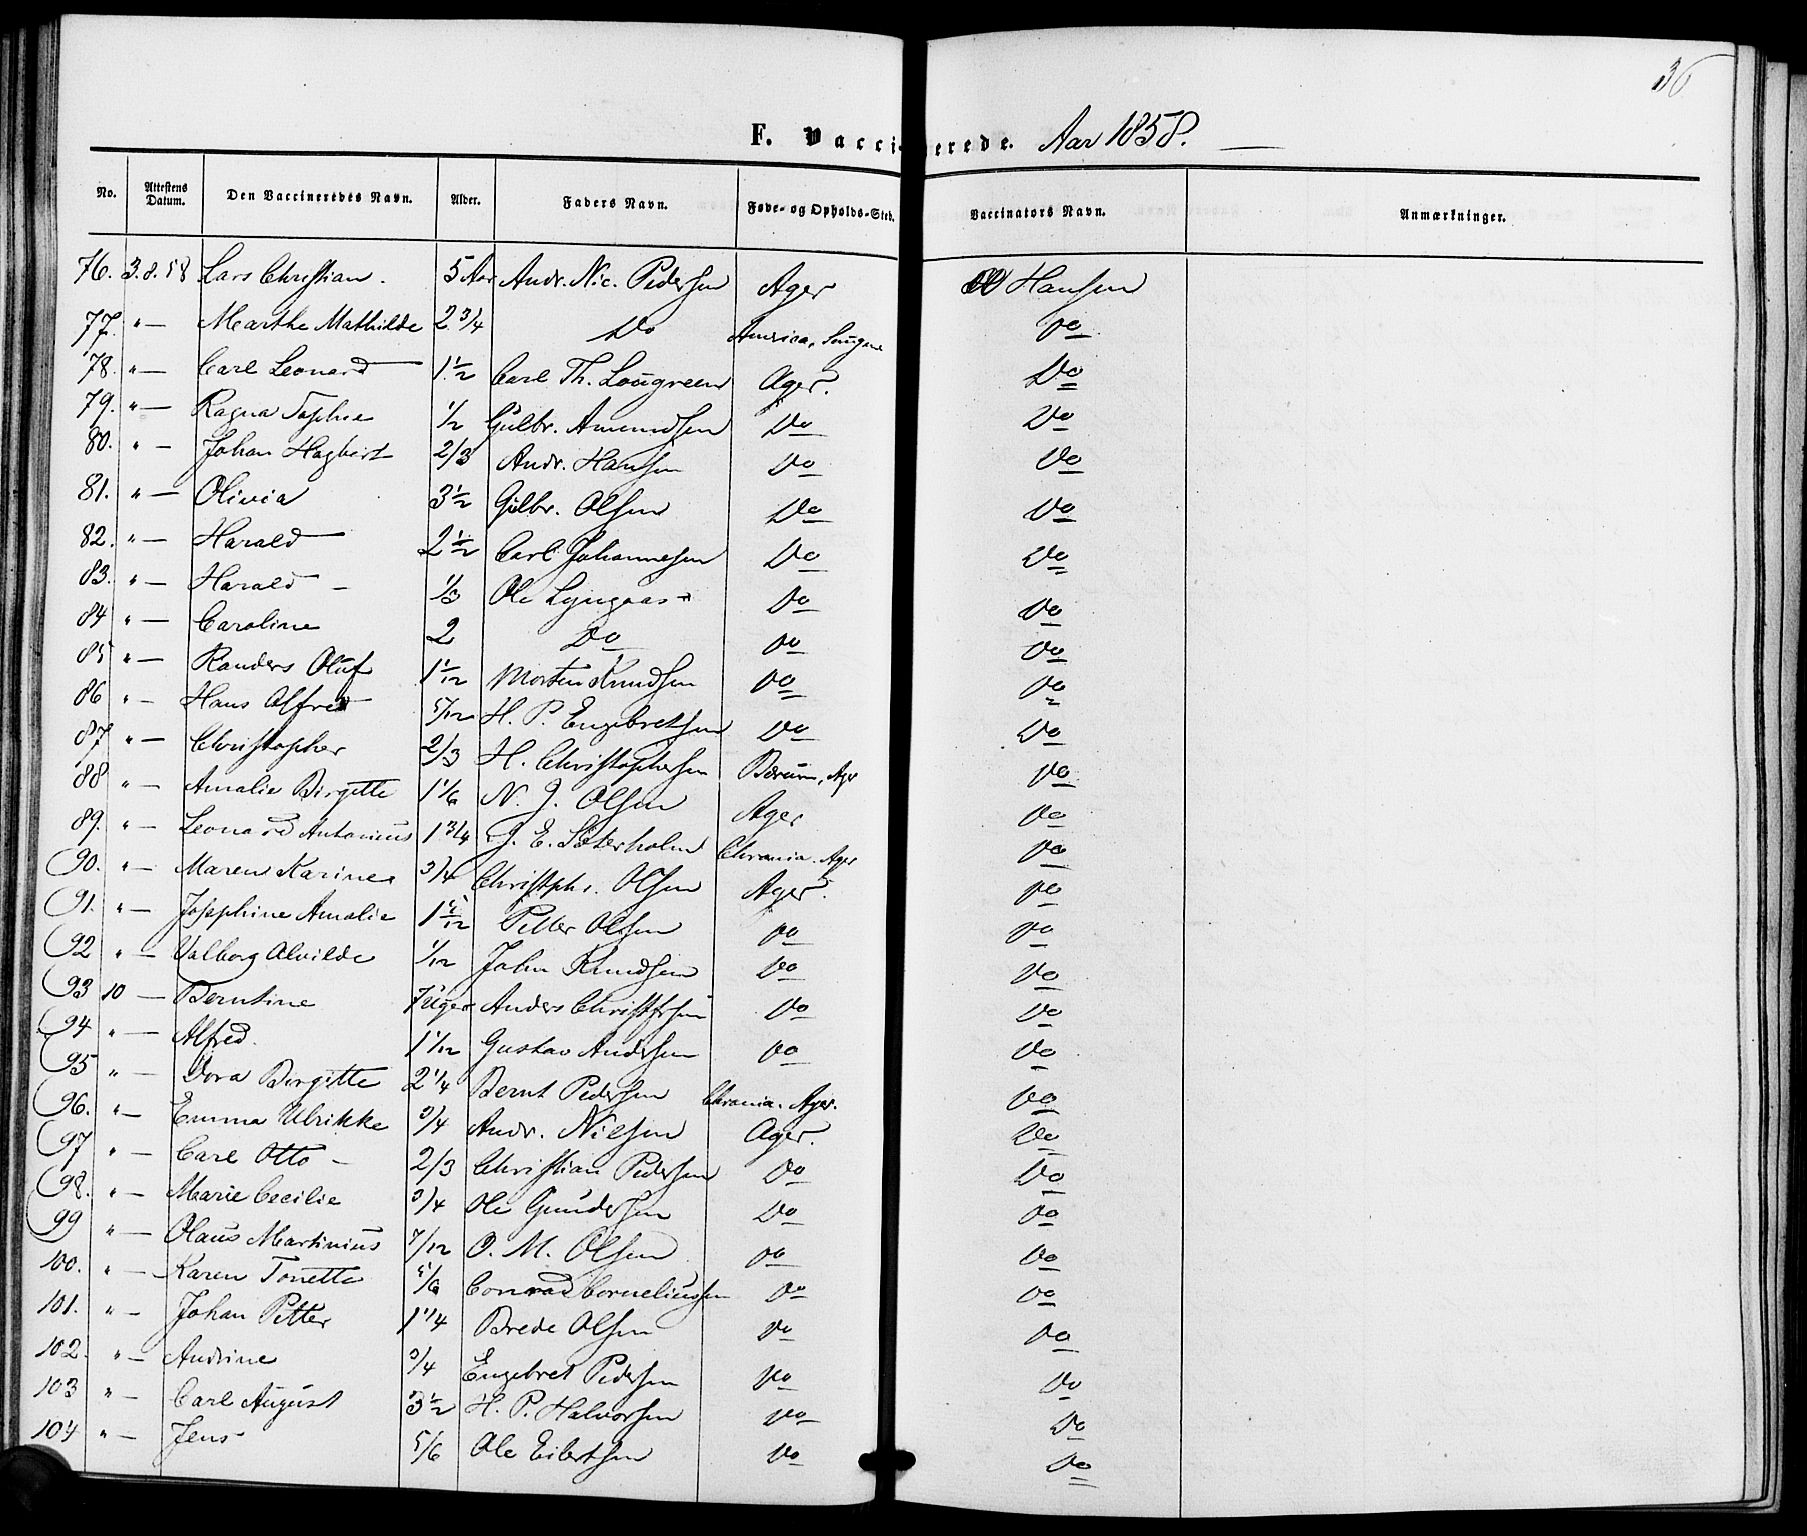 36
F. Vaccinerede. Aar 1858.
No. Attestens Datum. Den Vaccineredes Navn. Alder. Faders Navn. Føde- og Opholds-Sted. Vaccinators Navn. Anmærkninger.
76. 3.8.58 Lars Christian. 5 Aar Andr. Nic. Pedersen Ager Hansen
77. " — Marthe Mathilde 2 3/4 Do America, Do
78. " — Carl Leonard 1 1/2 Carl Th. Lougreen Ager. Do
79. " — Ragna Sophie 1/2 Gulbr. Amundsen Do Do
80. " — Johan Hagbart 2/3 Andr. Hansen Do Do
81. " — Olivia 3 1/2 Gulbr. Olsen Do Do
82. " — Harald 2 1/2 Carl Johannesen Do Do
83. " — Harald — 1/3 Ole Lyngaas Do Do
84 " — Caroline 2 Do Do Do
85 " — Randers Oluf 1 1/12 Morten Knudsen Do Do
86 " — Hans Alfred 5/12 H. P. Engebretsen Do Do
87 " — Christopher 2/3 H. Christophersen Bærum, Ager Do
88 " — Amalie Birgitte 1 1/6 N. J. Olsen Ager Do
89. " — Leonard Antonius 1 3/4 J. E. Säterholm Chrania. Ager Do
90. " — Maren Karine 3/4 Christphr. Olsen Ager. Do
91. " — Josephine Amalie 1 5/12 Petter Olsen Do Do
92 " — Valborg Alvilde 1/12 John Knudsen Do Do
93 10 — Berntine 7 Uger Anders Christfrsen Do Do
94 " — Alfred. 1 1/12 Gustav Andersen Do Do
95 " — Dora Birgitte 2 1/4 Bernt Pedersen Chrania. Ager. Do
96. " — Emma Ulrikke 3/4 Andr. Nielsen Ager. Do
97 " — Carl Otto — 2/3 Christian Pedersen Do Do
98. " — Marie Cecilie 3/4 Ole Gundersen Do Do
99 " — Olaus Martinius 7/12 O. M. Olsen Do Do
100. " — Karen Tonette 5/6 Conrad Corneliussen Do Do
101. " — Johan Petter 1 1/4 Brede Olsen Do Do
102. " — Andrine 3/4 Engebret Pedersen Do Do
103 " — Carl August 3 1/2 H. P. Halvorsen Do Do
104 " — Jens 5/6 Ole Eilertsen Do Do